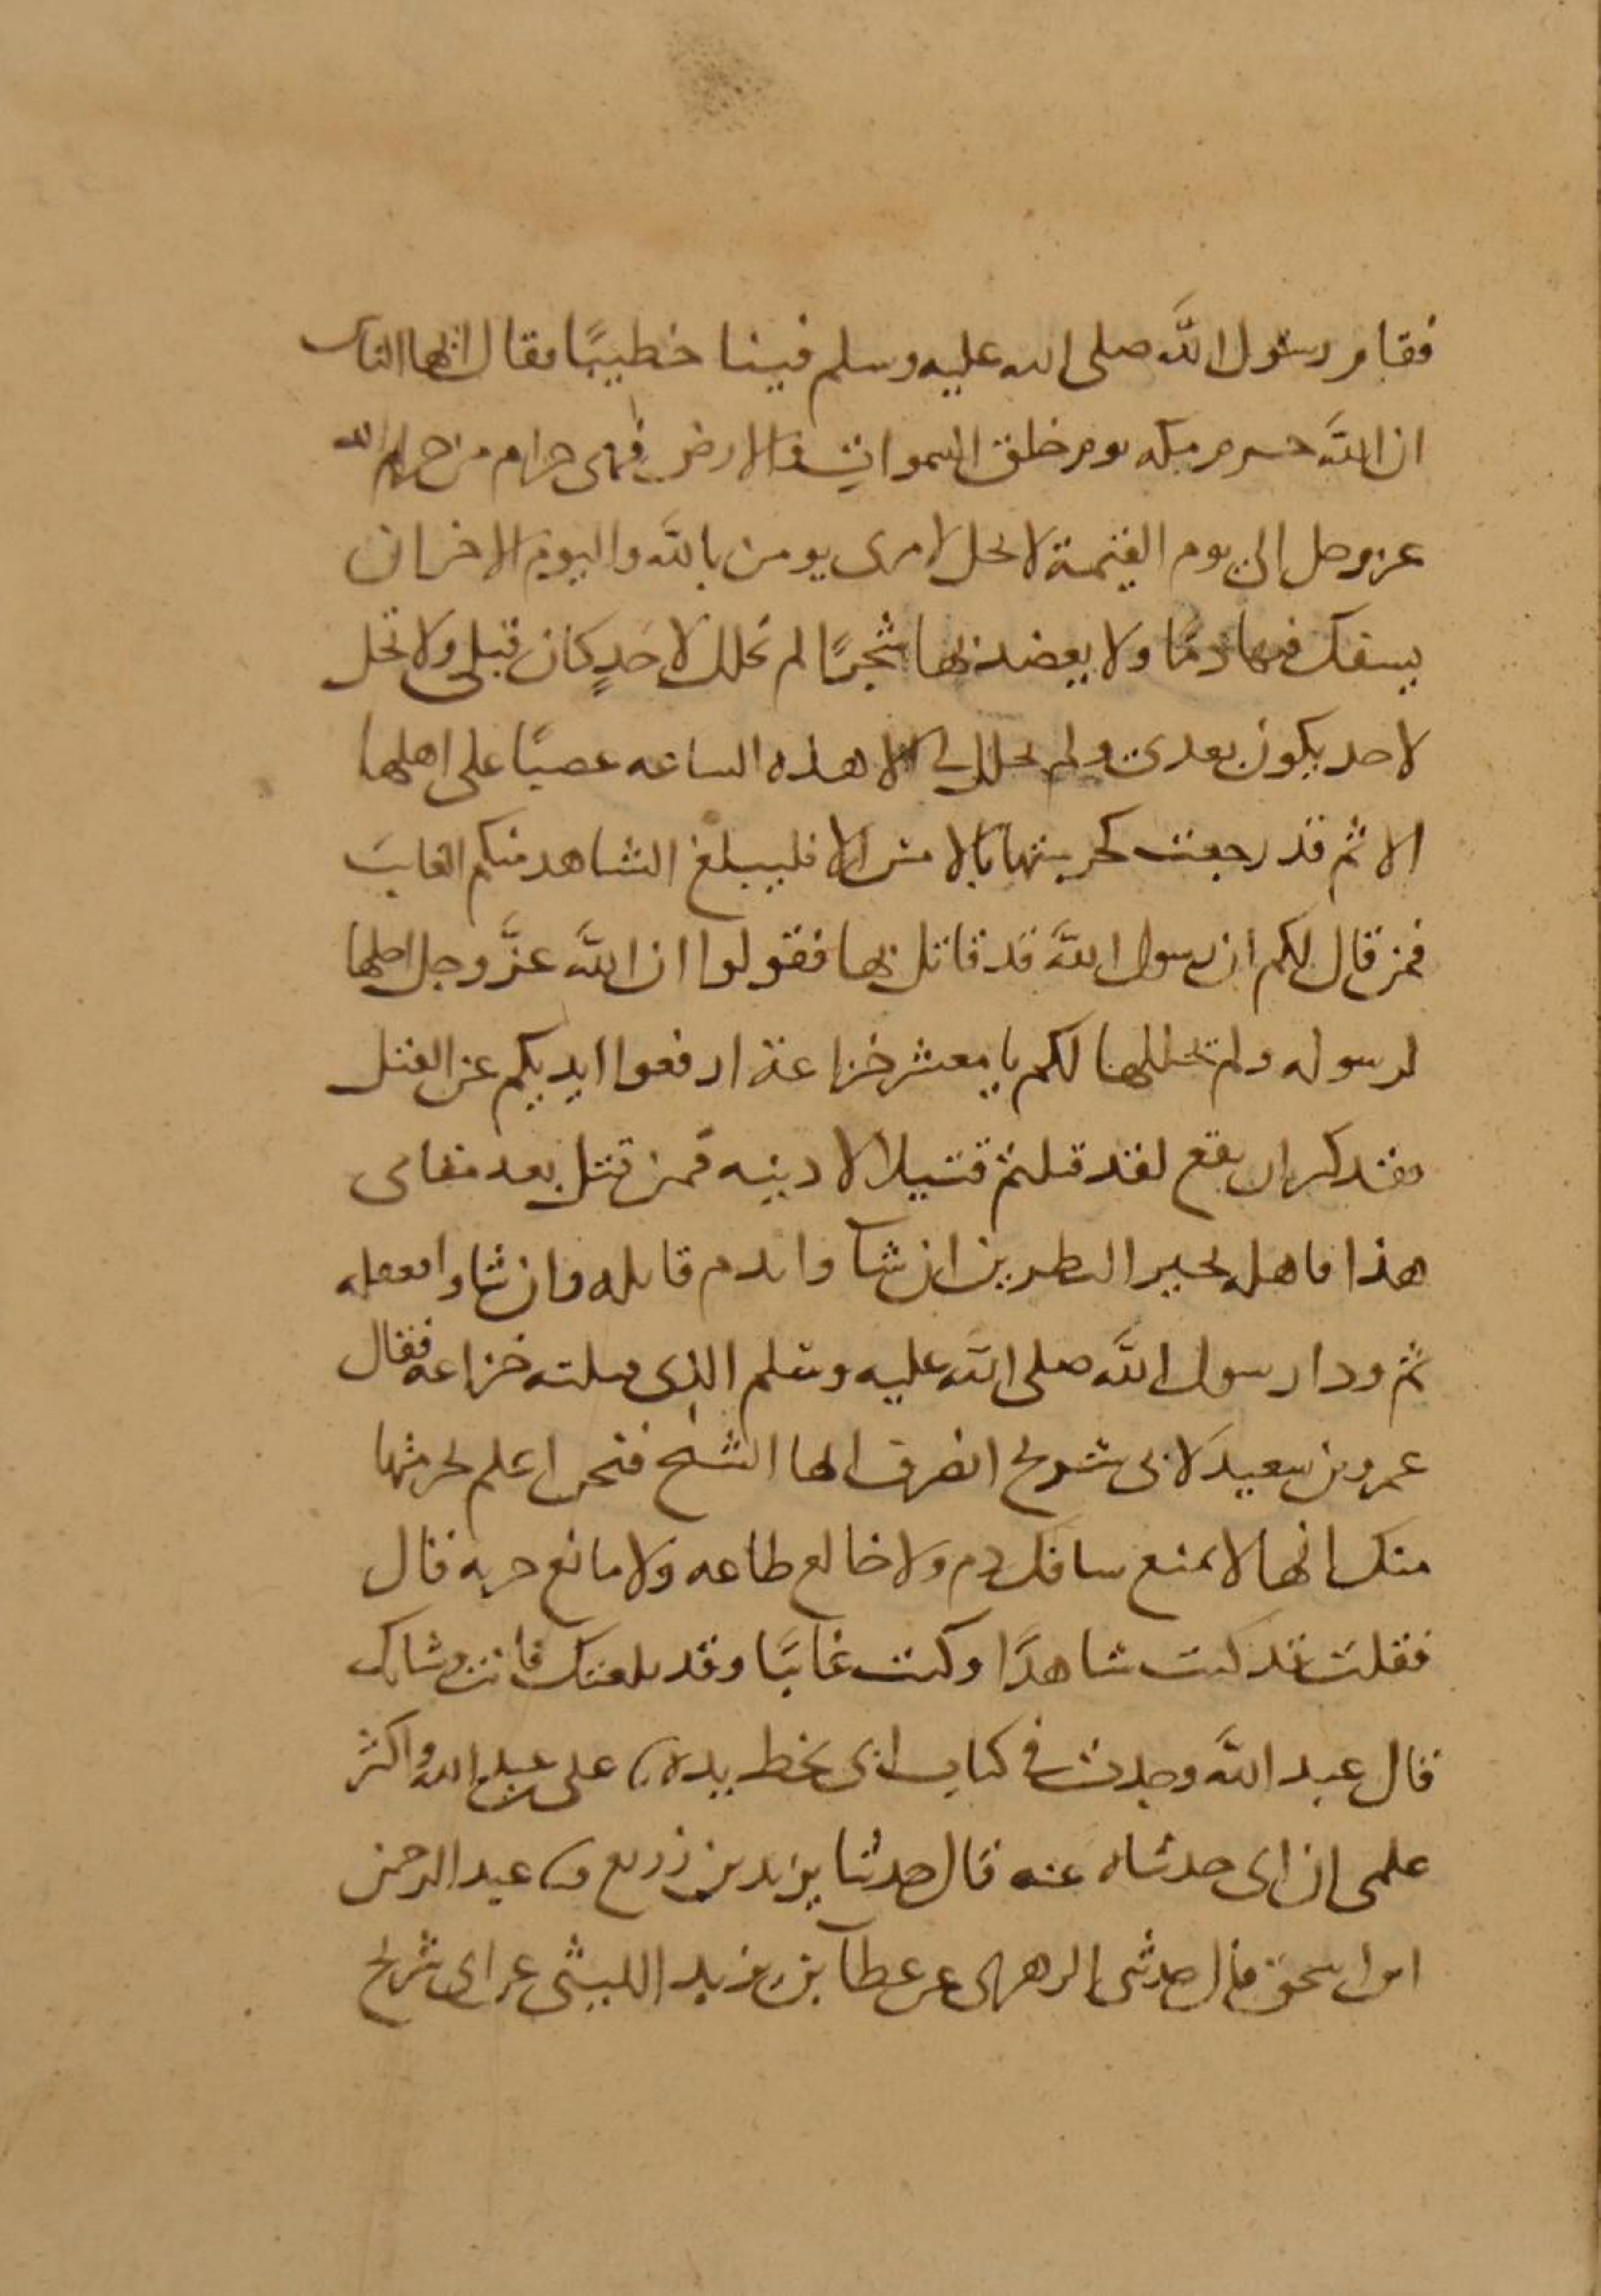 فقام رسول الله صلى الله عليه وسلم فينا خطيبًا فقال ايها الناس
ان الله حرم مكه يوم خلق السموات والارض فهى حرام من حرام الله
عز وجل الى يوم القيمة لا يحل لامرى يومن بالله واليوم الاخر ان
يسفك فيها دمًا ولا يعضد بها شجرًا لم تحلل لاحدٍ كان قبلى ولا تحل
لاحد يكون بعدى ولم تحلل لى الا هذه الساعه غضبًا على اهلها
الا ثم قد رجعت كحرمتها بالامس الا فليبلغ الشاهد منكم الغايب
فمن قال لكم ان رسول الله قد قاتل بها فقولوا ان الله عزَّ وجل احلها
لرسوله ولم يحللها لكم يا معشر خزاعة ارفعوا ايديكم عن القتل
فقد كثر ان يقع لقد قتلتم قتيلا لادينه فمن قتل بعد مقامى
هذا فاهله بخير النظرين ان شاوا فدم قاتله وان شاوا فعقله
ثم ودا رسول الله صلى الله عليه وسلم الذى قتلته خزاعه فقال
عمرو بن سعيد لابى شريح انصرف ايها الشيخ فنحن اعلم بحرمتها
منك انها لا تمنع سافك دم ولا خالع طاعه ولا مانع جزيه قال
فقلت قد كنت شاهدًا وكنت غايبًا وقد بلغتك فانت وشانك
قال عبد الله وجدت فى كتاب ابى بخط يده على عبد الله واكثر
علمى ان ابى حدثناه عنه قال حدثنا يزيد بن زريع عبد الرحمن
ابن اسحق قال حدثنى الزهرى عن عطا بن يزيد الليثى عن ابى شريح